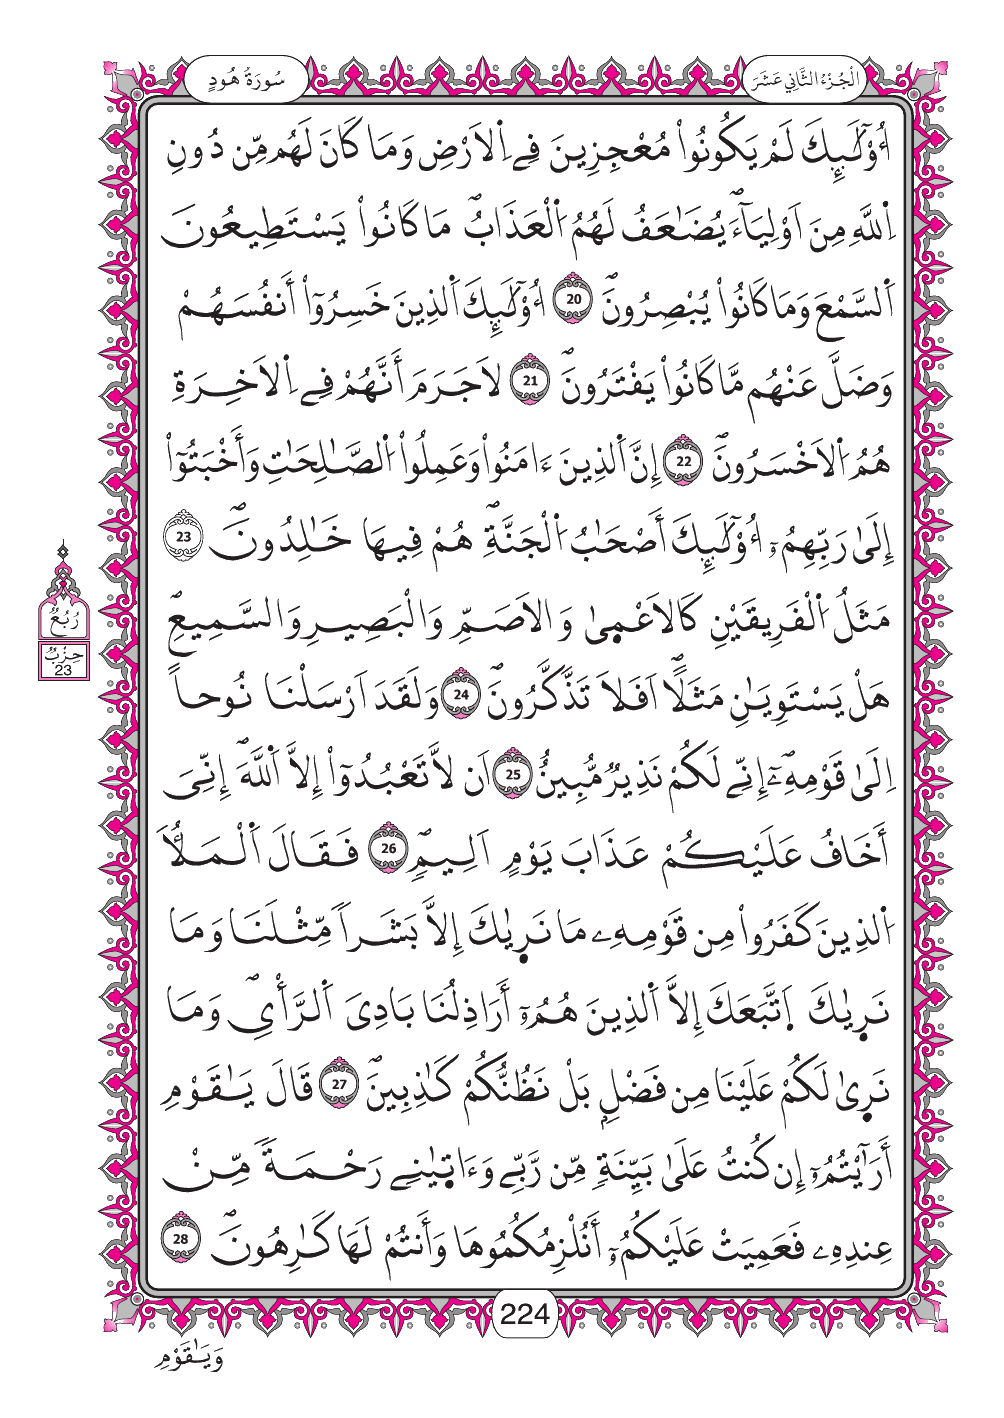 الْجُزْءُ الثَّانِي عَشَرَ
سُورَةُ هُودٍ
أُوْلَٰٓئِكَ لَمْ يَكُونُواْ مُعْجِزِينَ فِے اِ۬لَارْضِ وَمَا كَانَ لَهُم مِّن دُونِ
اِ۬للَّهِ مِنَ اَوْلِيَآءَۖ يُضَٰعَفُ لَهُمُ اُ۬لْعَذَابُۖ مَا كَانُواْ يَسْتَطِيعُونَ
اَ۬لسَّمْعَ وَمَا كَانُواْ يُبْصِرُونَۖ 20 أُوْلَٰٓئِكَ اَ۬لذِينَ خَسِرُوٓاْ أَنفُسَهُمْ
وَضَلَّ عَنْهُم مَّا كَانُواْ يَفْتَرُونَۖ 21 لَا جَرَمَ أَنَّهُمْ فِے اِ۬لَاخِرَةِ
هُمُ اُ۬لَاخْسَرُونَۖ 22 إِنَّ اَ۬لذِينَ ءَامَنُواْ وَعَمِلُواْ اُ۬لصَّٰلِحَٰتِ وَأَخْبَتُوٓاْ
إِلَىٰ رَبِّهِمُۥٓ أُوْلَٰٓئِكَ أَصْحَٰبُ اُ۬لْجَنَّةِۖ هُمْ فِيهَا خَٰلِدُونَۖ 23
مَثَلُ اُ۬لْفَرِيقَيْنِ كَالَاعْمٜىٰ وَالَاصَمِّ وَالْبَصِيرِ وَالسَّمِيعِۖ
هَلْ يَسْتَوِيَٰنِ مَثَلاًۖ اَفَلَا تَذَّكَّرُونَۖ 24 وَلَقَدَ اَرْسَلْنَا نُوحاً
اِلَىٰ قَوْمِهِۦٓۖ إِنِّے لَكُمْ نَذِيرٞ مُّبِينٌ 25 اَن لَّا تَعْبُدُوٓاْ إِلَّا اَ۬للَّهَۖ إِنِّيَ
أَخَافُ عَلَيْكُمْ عَذَابَ يَوْمٍ اَلِيمٖۖ 26 فَقَالَ اَ۬لْمَلَأُ
اُ۬لذِينَ كَفَرُواْ مِن قَوْمِهِۦ مَا نَرٜىٰكَ إِلَّا بَشَراٗ مِّثْلَنَا وَمَا
نَرٜىٰكَ اَ۪تَّبَعَكَ إَلَّا اَ۬لذِينَ هُمُۥٓ أَرَاذِلُنَا بَادِيَ اَ۬لرَّأْيِۖ وَمَا
نَرٜىٰ لَكُمْ عَلَيْنَا مِن فَضْلِۢ بَلْ نَظُنُّكُمْ كَٰذِبِينَۖ 27 قَالَ يَٰقَوْمِ
أَرَآيْتُمُۥٓ إِن كُنتُ عَلَىٰ بَيِّنَةٖ مِّن رَّبِّے وَءَاتٜىٰنِے رَحْمَةٗ مِّنْ
عِندِهِۦ فَعَمِيَتْ عَلَيْكُمُۥٓ أَنُلْزِمُكُمُوهَا وَأَنتُمْ لَهَا كَٰرِهُونَۖ 28
رُبُعُ
حِزْبُ
23
224
وَيَٰقَوْمِ